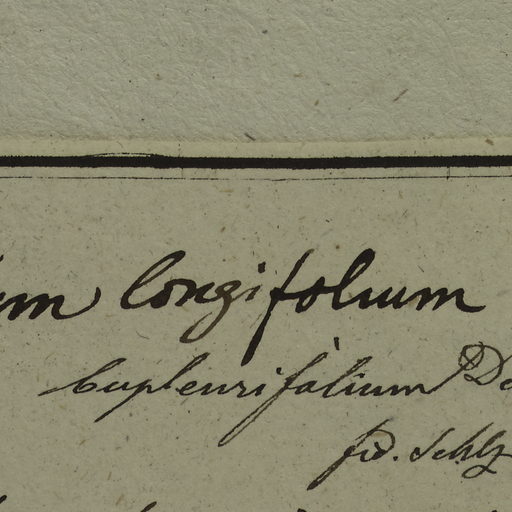 um longifolium
bupleurifolium De
fid. Schlz